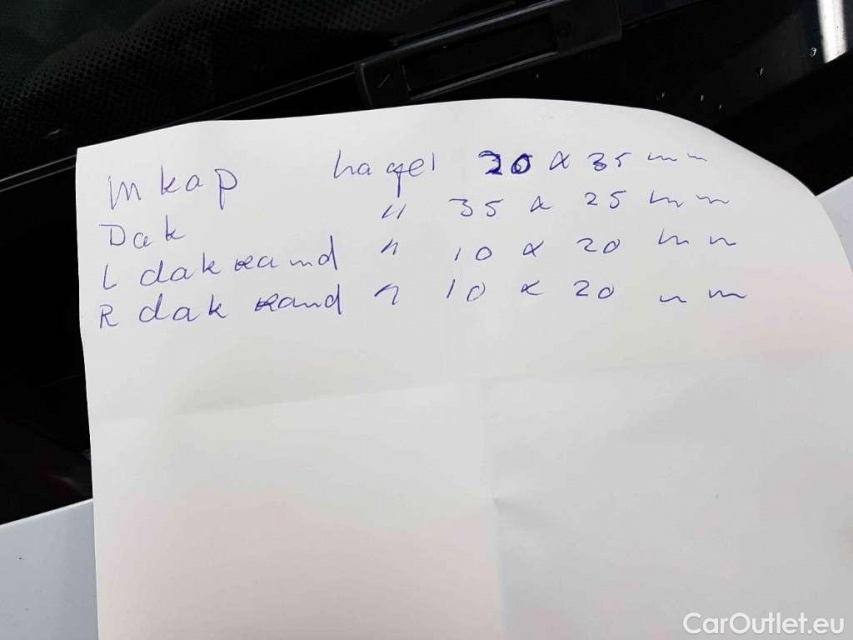 M kap hagel 20 x 35 mm
Dak " 35 x 25 mm
L dakrand " 10 x 20 mm
R dakrand " 10 x 20 mm
CarOutlet.eu